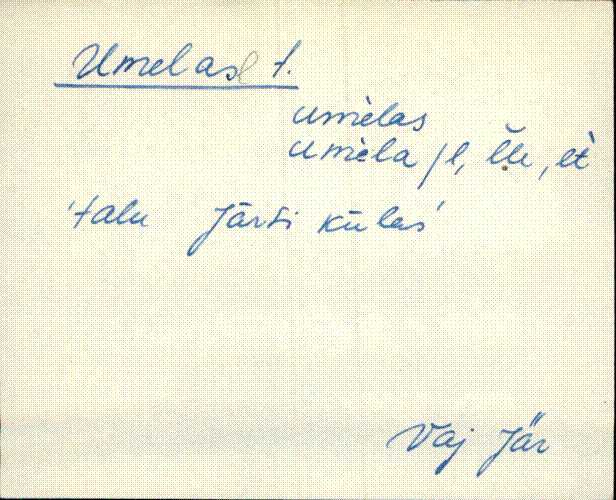 Umelas t.
umèlas
umèla /l, l̆le, èt
'talu Jārsi kūlas'
Vaj Jär